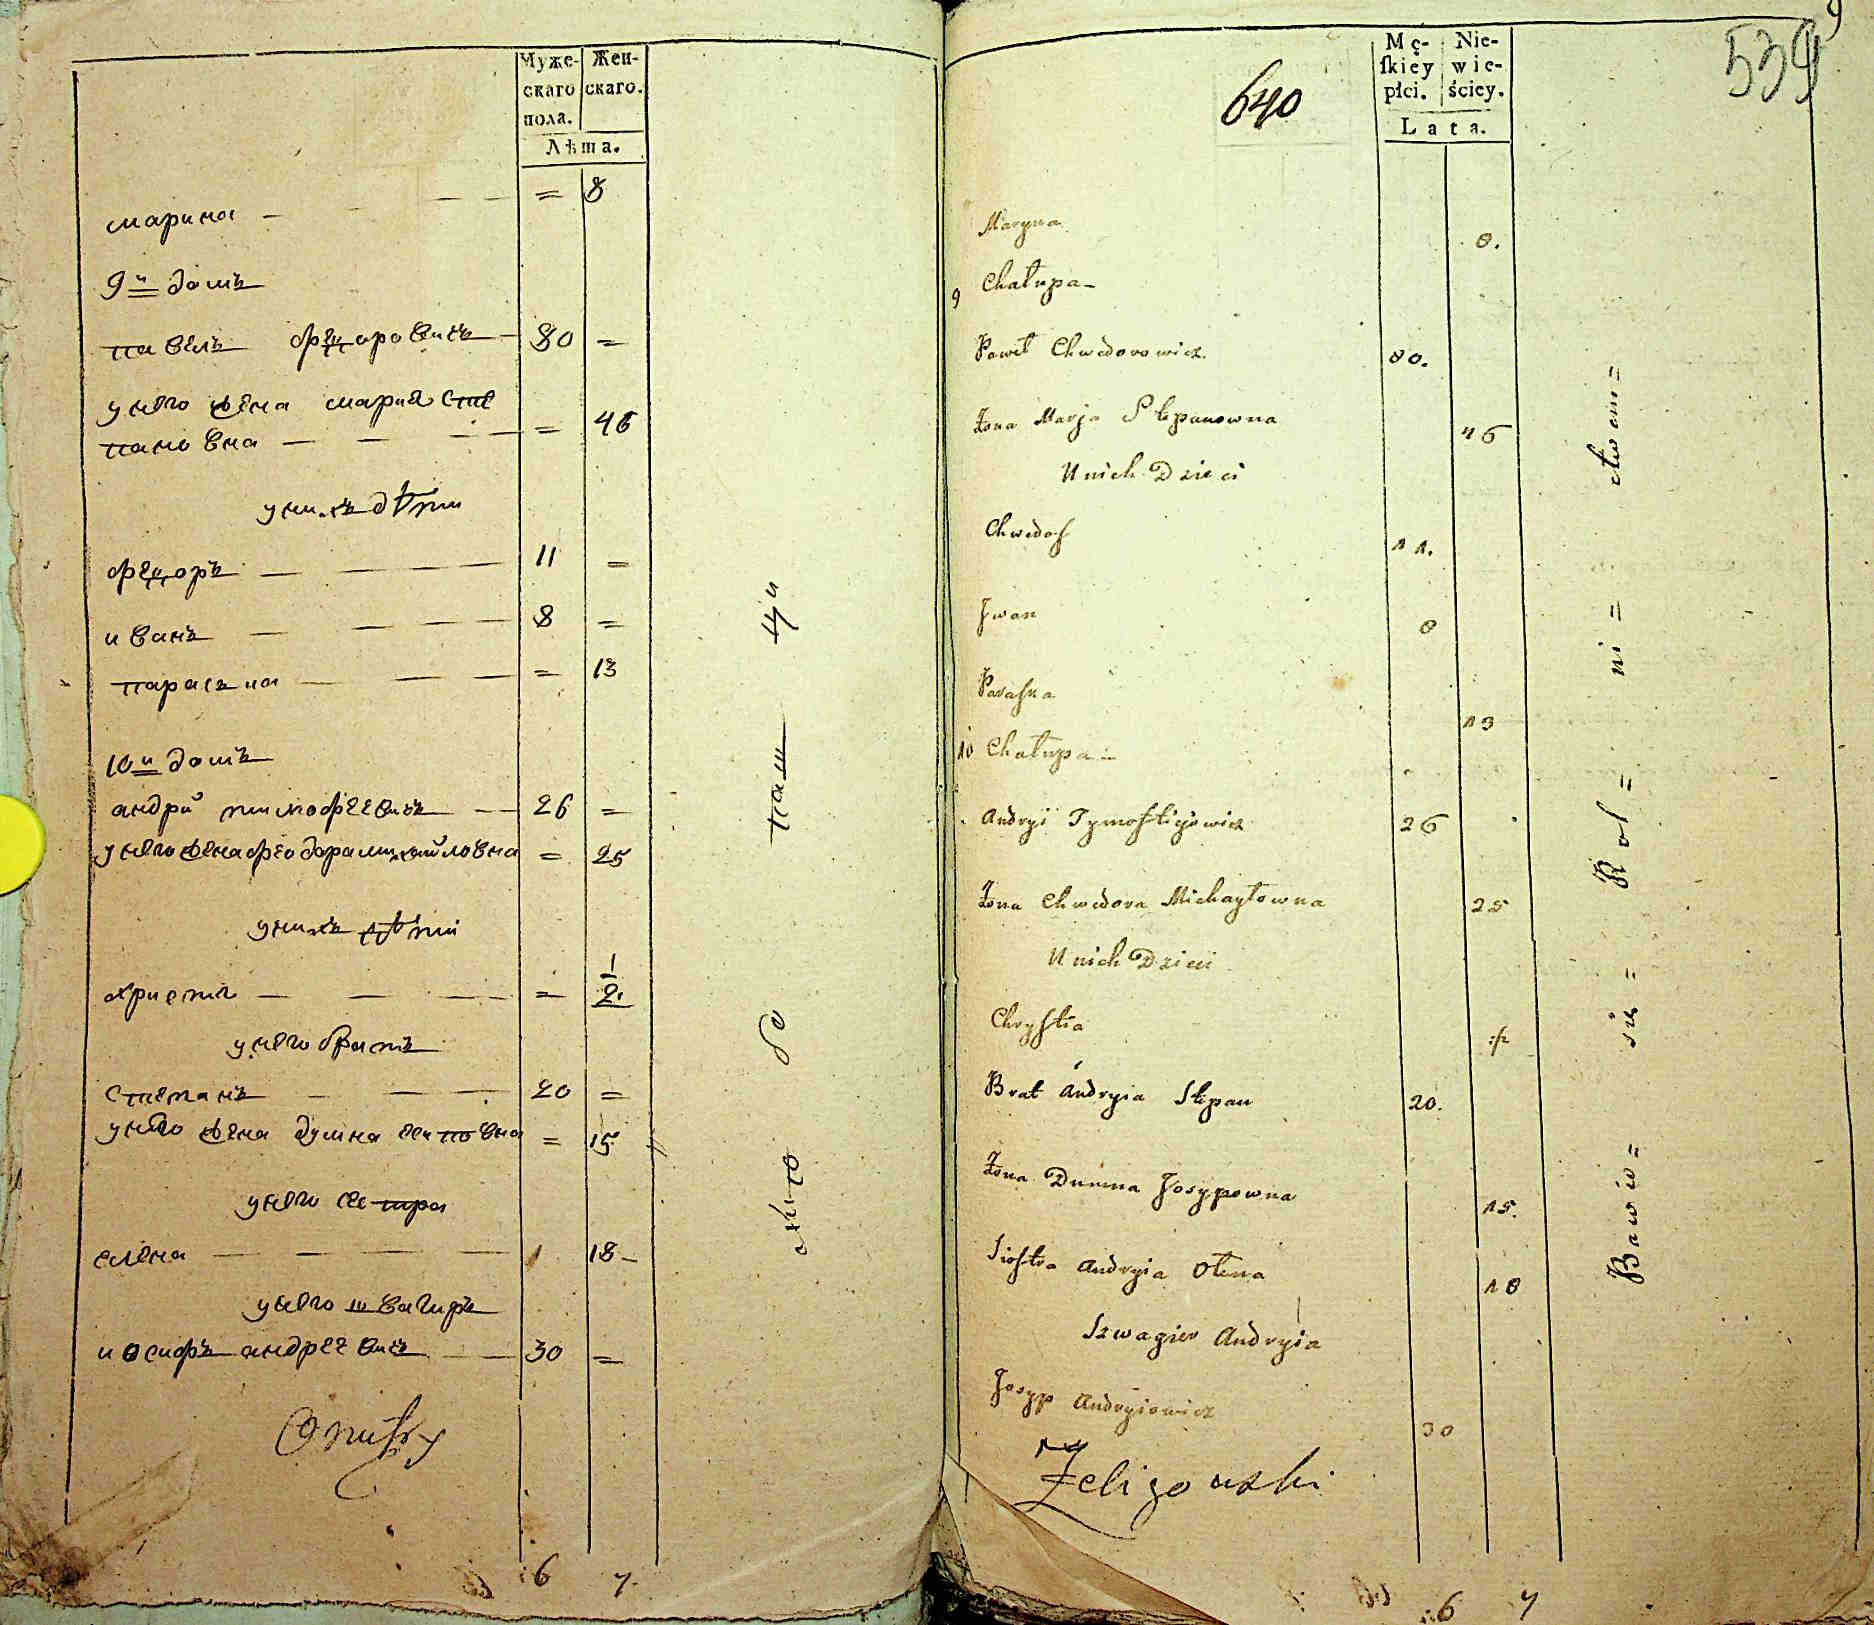 Муже- Жен-
скаго скаго.
пола.
Лѣта.
марина — — — = 8
9й домъ
павелъ феодоровичъ — 80 =
у него жена мария сте
пановна — — — = 46
у нихъ дѣти
феодоръ — — — 11 =
иванъ — — — 8 =
параска — — — = 13
10й домъ
андрій тимофеевичъ — 26 =
у него жена феодора михайловна = 25
у нихъ дѣти
христя — — — = 1/2.
у него братъ
степанъ — — — 20 =
у него жена думна осиповна = 15
у него сестра
елена — — — 18 —
у него швагиръ
иосифъ андреевичъ — 30 =
6 7
539
9
640
Mę- Nie-
ſkiey wie-
płci. ściey.
Lata.
Maryna 8.
9 Chałupa -
Paweł Chwedorowicz 80.
Żona Marja Stepanowna 46
U nich Dzieci
Chwedoſ 11.
Jwan 8
Paraſka 13
10 Chałupa -
Andryi Tymoſtiejowicz 26
Żona Chwedora Michayłowna 25
U nich Dzieci
Chryſtia 1/2
Brat Andryia Stepan 20.
Żona Dumna Josypowna 15.
Sioſtra Andryia Olena 18
Szwagier Andryia
Josyp Andryiowicz 30
Żeligowski
6 7
Bawią = się = Rol = ni = ctwem =